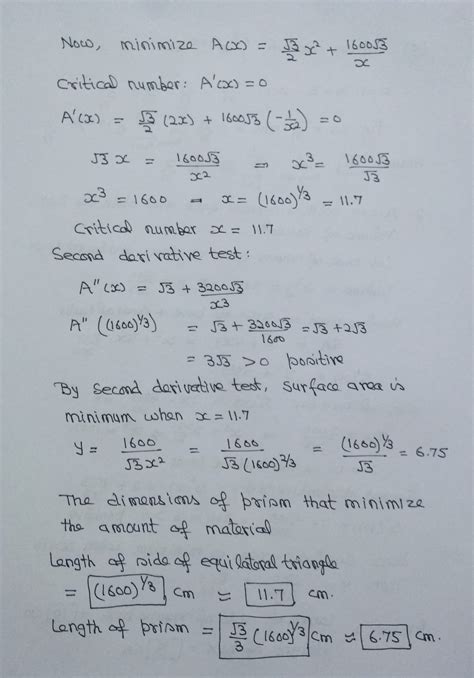 Now, minimize A(x) = √3/2 x² + 1600√3/x
Critical number: A'(x) = 0
A'(x) = √3/2 (2x) + 1600√3 (-1/x²) = 0
√3 x = 1600√3/x² ⇒ x³ = 1600√3/√3
x³ = 1600 ⇒ x = (1600)^1/3 = 11.7
Critical number x = 11.7
Second derivative test:
A"(x) = √3 + 3200√3/x3
A" ((1600)^1/3) = √3 + 3200√3/1600 = √3 + 2√3
= 3√3 > 0 positive
By second derivative test, surface area is
minimum when x = 11.7
y = 1600/√3 x² = 1600/√3 (1600)^2/3 = (1600)^1/3/√3 = 6.75
The dimensions of prism that minimize
the amount of material
Length of side of equilateral triangle
= (1600)^1/3 cm ≈ 11.7 cm.
Length of prism = √3/3 (1600)^1/3 cm ≈ 6.75 cm.